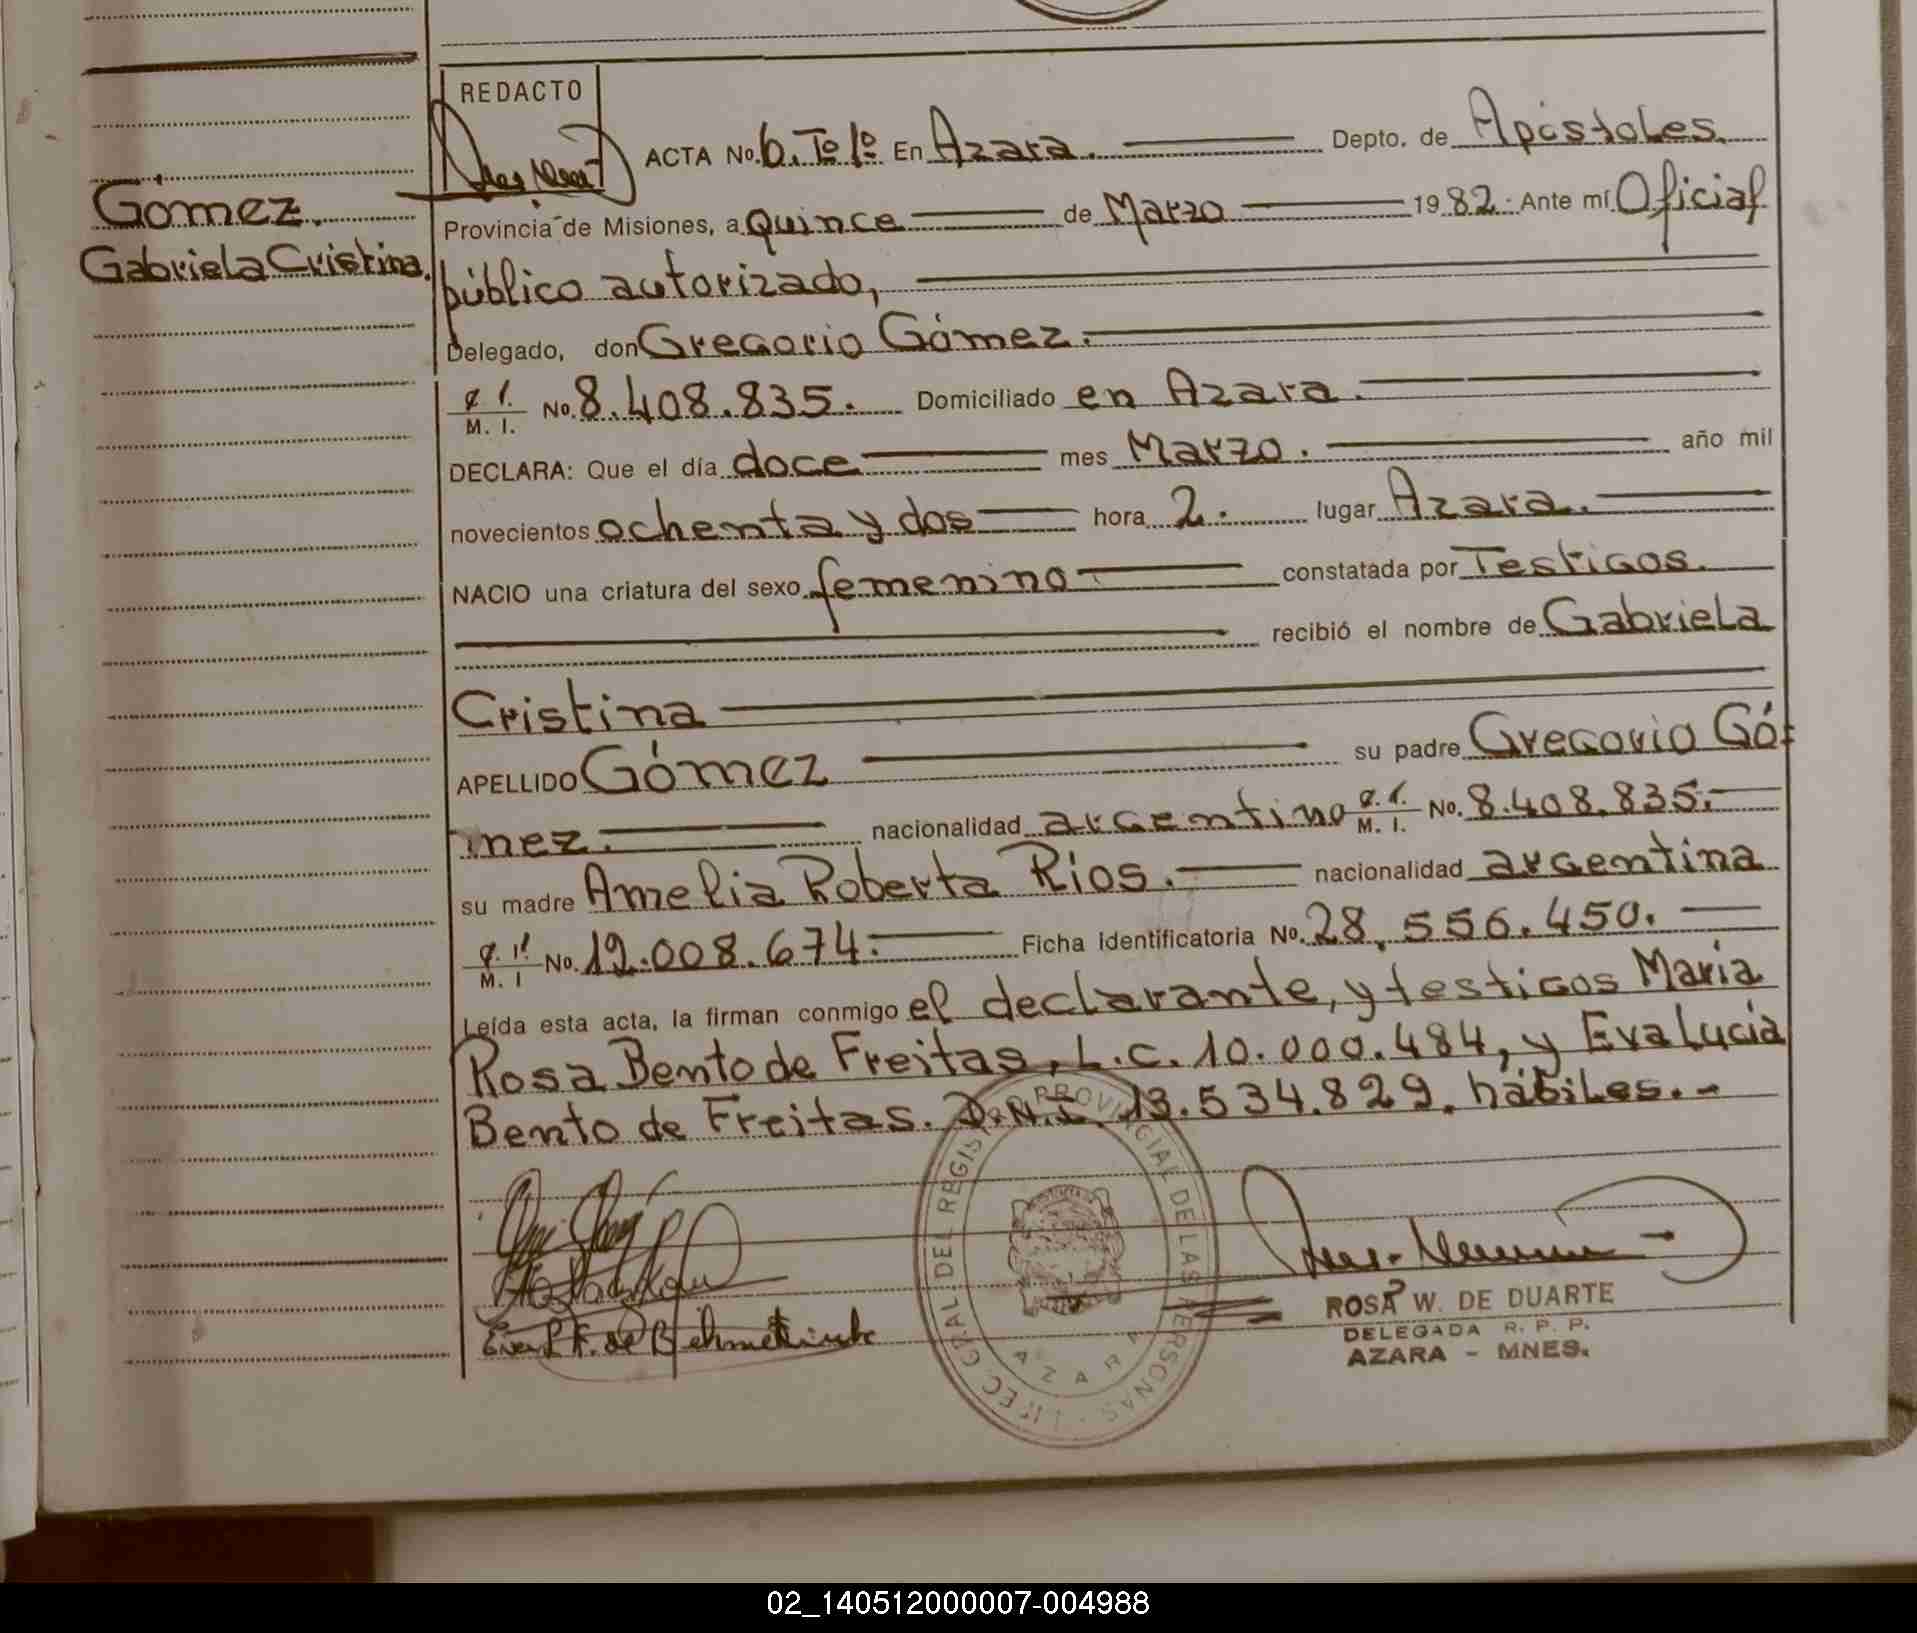 REDACTO
ACTA No. 6. Tº 1º En Azara. Depto. de Apóstoles.
Gómez.
Provincia de Misiones, a quince de Marzo 1982. Ante mí Oficial
Gabriela Cristina.
público autorizado,
Delegado, don Gregorio Gómez.
M. I. No. 8.408.835. Domiciliado en Azara.
DECLARA: Que el día doce mes Marzo. año mil
novecientos ochenta y dos hora 2. lugar Azara.
NACIO una criatura del sexo femenino constatada por Testigos.
recibió el nombre de Gabriela
Cristina
APELLIDO Gómez su padre Gregorio Gó-
mez. nacionalidad argentino M. I. No. 8.408.835.
su madre Amelia Roberta Rios. nacionalidad argentina
M. I No. 12.008.674. Ficha identificatoria No. 28.556.450.
Leída esta acta, la firman conmigo el declarante, y testigos Maria
Rosa Bento de Freitas, L.C. 10.000.484, y Eva Lucía
Bento de Freitas. D.N.I. 13.534.829. hábiles.-
DEL REGIST. PROVINCIAL DE LAS PERSONAS
AZARA
ROSA W. DE DUARTE
DELEGADA R. P. P.
AZARA - MNES.
02_140512000007-004988